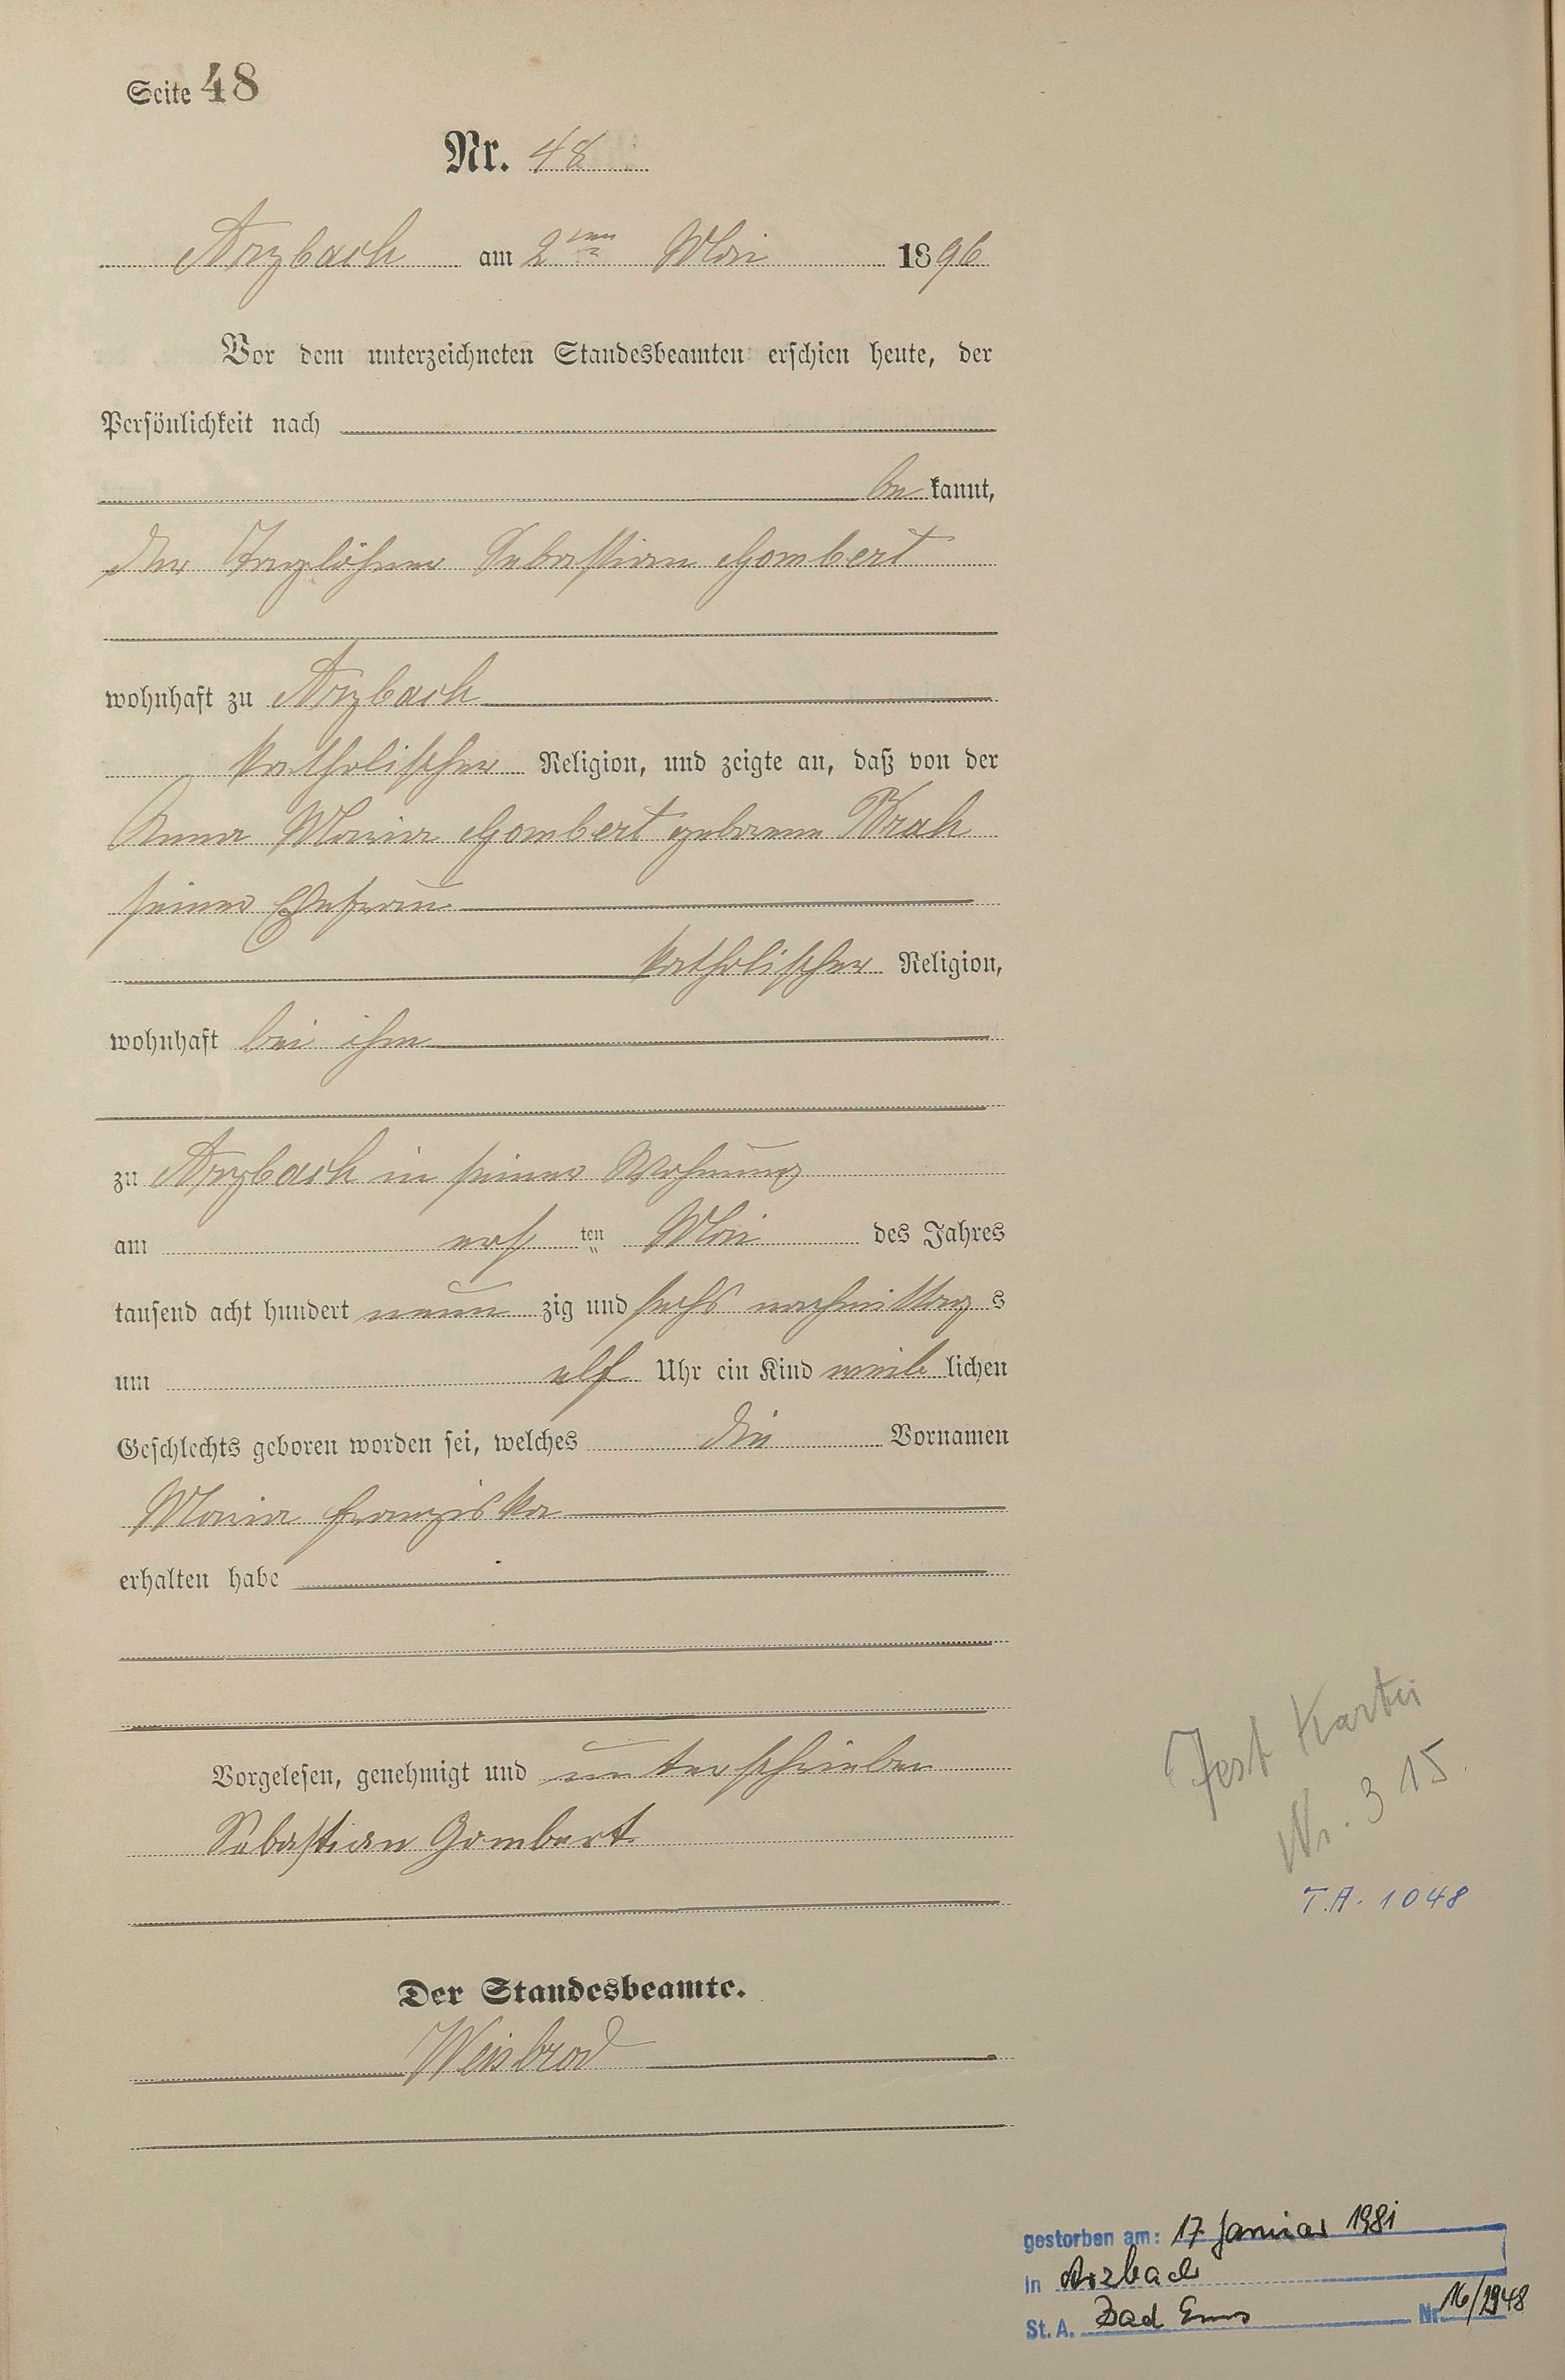 Seite 48
Nr. 48
Arzbach am 2ten Mai 1896
Vor dem unterzeichneten Standesbeamten erschien heute, der
Persönlichkeit nach
be kannt,
der Taglöhner Sebastian Gombert
wohnhaft zu Arzbach
katholischer Religion, und zeigte an, daß von der
Anna Maria Gombert geborene Krah
seiner Ehefrau
katholischer Religion,
wohnhaft bei ihm
zu Arzbach in seiner Wohnung
am ers ten Mai des Jahres
tausend acht hundert neun zig und sechs nachmittag s
um elf Uhr ein Kind weib lichen
Geschlechts geboren worden sei, welches die Vornamen
Maria Franziska
erhalten habe
Vorgelesen, genehmigt und unterschrieben
Sebastian Gombert
Der Standesbeamte.
Weisbrod
Kartei
Nr. 315.
T.A. 1048
gestorben am: 17. Januar 1981
in Arzbach
St. A. Bad Ems Nr. 16/1948